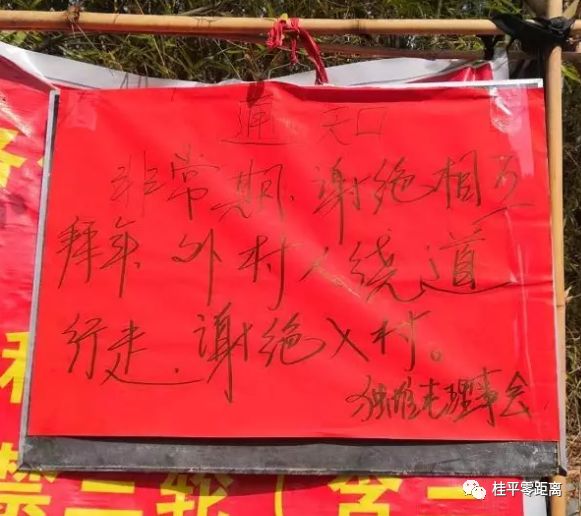 通知
非常期、谢绝相互
拜年、外村人绕道
行走、谢绝入村。
屯理事会
禁三轮（含
桂平零距离